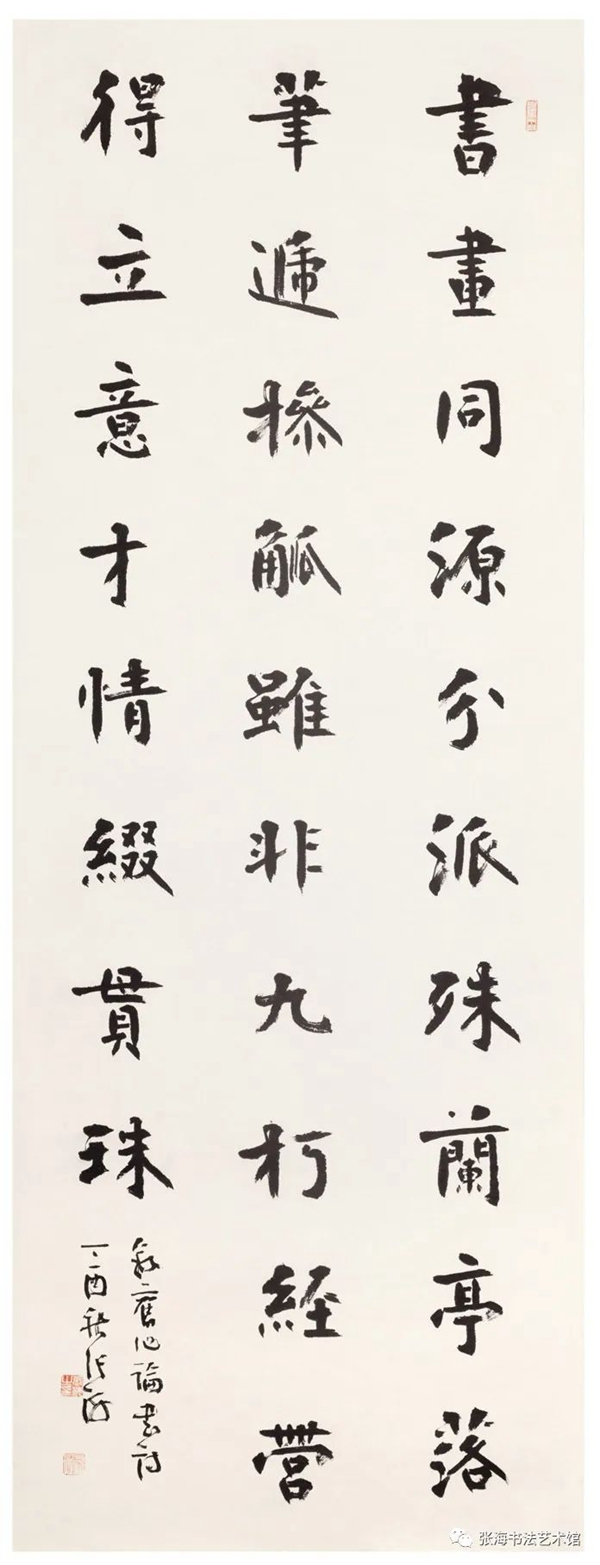 書畫同源分派殊蘭亭落
筆遞操觚雖非九朽経營
得立意才情綴貫珠
錄舊作論書詩
丁酉秋張海
张海书法艺术馆